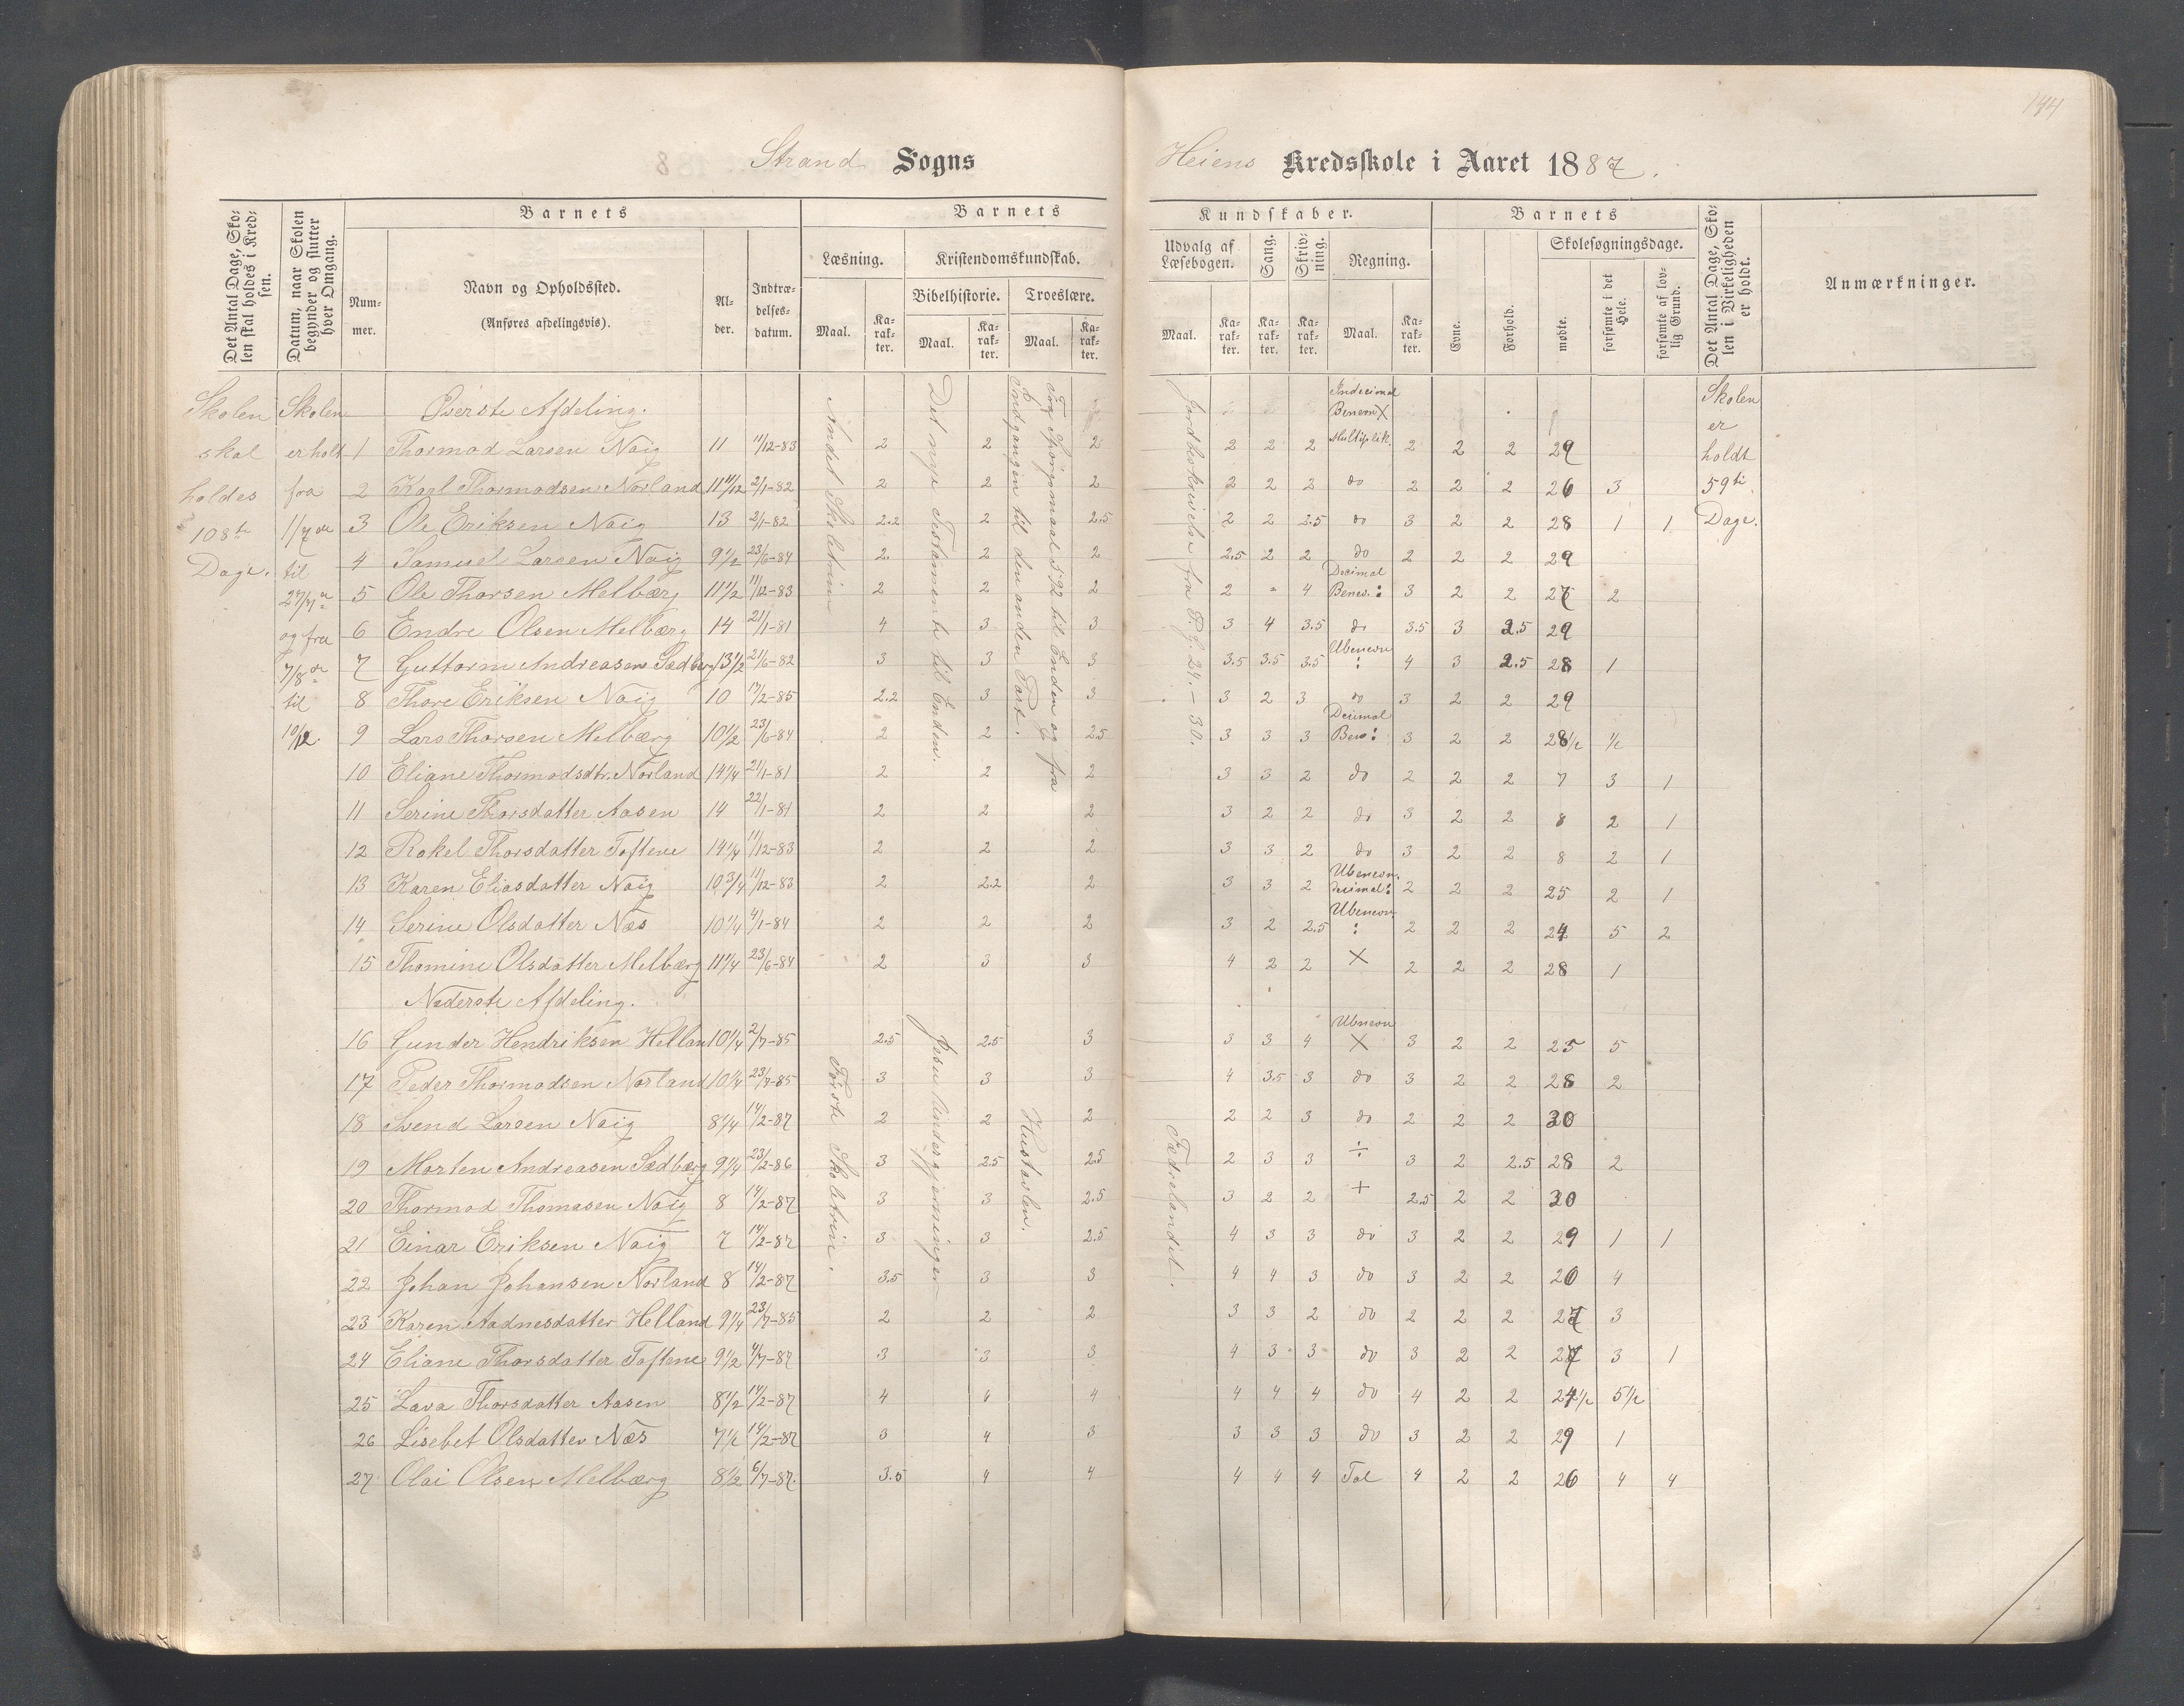 144
Strand Sogns
Heiens Kredsskole i Aaret 1887.
Det Antal Dage, Skolen skal holdes i Kredsen.
Datum, naar Skolen begynder og slutter hver Omgang.
Barnets
Nummer.
Navn og Opholdssted.
(Anføres afdelingsvis).
Alder.
Indtrædelsesdatum.
Barnets
Læsning.
Maal.
Karakter.
Kristendomskundskab.
Bibelhistorie.
Maal.
Karakter.
Troeslære.
Maal.
Karakter.
Kundskaber.
Udvalg af Læsebogen.
Maal.
Karakter.
Sang.
Karakter.
Skrivning.
Karakter.
Regning.
Maal.
Karakter.
Barnets
Evne.
Forhold.
Skolesøgningsdage.
mødte.
forsømte i det Hele.
forsømte af lovlig Grund.
Det Antal Dage, Skolen i Virkeligheden er holdt.
Anmærkninger.
Skolen skal holdes 108te Dage.
Skolen er holdt fra 1/7 de til 27/7 de og fra 7/8 de til 10/12.
Andet Skoletrin
Det nye Testamente til Enden.
Fra Spørgsmaal 592 til Enden og fra
Indgangen til den anden Part.
Jordbeskrivelse fra P. g. 24. – 30.
Skolen er holdt 59ti Dage.
Øverste Afdeling. Indecimal Benevn X
1 Thormod Larsen Naig 11 11/12-83 2 2 2 2 2 2 Multiplik. 2 2 2 29
2 Karl Thormodsen Norland 11 11/12 2/1-82 2 2 2 2 2 2 do 2 2 2 26 3
3 Ole Eriksen Naig 13 2/1-82 2.2 2 2.5 2 2 2.5 do 3 2 2 28 1 1
4 Samuel Larsen Naig 9 1/2 23/6-84 2. 2 2 2.5 2 2 do 2 2 2 29
5 Ole Thorsen Melbærg 11 1/2 11/12-83 2 2 2 2 " 4 Decimal Benev. : 3 2 2 27 2
6 Endre Olsen Melbærg 14 21/1-81 4 3 3 3 4 3.5 do 3.5 3 2.5 29
7 Guttorm Andreasen Sædberg 13 1/2 21/6-82 3 3 3 3.5 3.5 3.5 Ubenevn : 4 3 2.5 28 1
8 Thore Eriksen Naig 10 17/2-85 2.2 3 3 3 2 3 do 3 2 2 29
9 Lars Thorsen Melbærg 10 1/2 23/6-84 2 2 2.5 3 3 3 Decimal Ben : 3 2 2 28 1/2 1/2
10 Eliane Thormodsdtr. Norland 14 1/4 21/1-81 2 2 2 3 3 2 do 2 2 2 7 3 1
11 Serine Thorsdatter Aasen 14 22/1-81 2 2 2 3 2 2 do 3 2 2 8 2 1
12 Rakel Thorsdatter Toftene 14 1/4 11/12-83 2 2 2 3 3 2 do 3 2 2 8 2 1
13 Karen Eliasdatter Naig 10 3/4 11/12-83 2 2.2 2 3 3 2 Ubenevn. decimal : 2 2 2 25 2 1
14 Serine Olsdatter Næs 10 1/4 4/1-84 2 2 2 3 2 2.5 Ubenevn : 2 2 2 24 5 2
15 Thomine Olsdatter Melbærg 11 1/4 23/6-84 2 3 3 4 2 2 X 2 2 2 28 1
Nederste Afdeling.
Første Skoletrin.
Jesu Undergjerninger
Hustavlen.
Fædrelandet.
16 Gunder Hendriksen Helland 10 1/4 2/7-85 2.5 2.5 3 3 3 4 Ubnevn X 3 2 2 25 5
17 Peder Thormodsen Norland 10 1/4 23/7-85 3 3 3 4 3.5 3 do 3 2 2 28 2
18 Svend Larsen Naig 8 1/4 14/2-87 2 2 2 2 2 3 do 2 2 2 30
19 Morten Andreasen Sædbærg 9 1/4 23/2-86 3 2.5 2.5 2 3 3 ÷ 3 2 2.5 28 2
20 Thormod Thomasen Naig 8 14/2-87 3 3 2.5 3 2 2 + 2.5 2 2 30
21 Einar Eriksen Naig 7 14/2-87 3 3 2.5 4 3 3 do 3 2 2 29 1 1
22 Johan Johansen Norland 8 14/2-87 3.5 3 3 4 4 3 do 3 2 2 26 4
23 Karen Aadnesdatter Helland 9 1/4 23/7-85 2 2 2 3 3 2 do 2 2 2 27 3
24 Eliane Thorsdatter Toftene 9 1/2 4/7-87 3 3 3 4 3 3 do 3 2 2 27 3 1
25 Lava Thorsdatter Aasen 8 1/2 14/2-87 4 4 4 4 4 4 do 4 2 2 24 1/2 5 1/2
26 Lisebet Olsdatter Næs 7 1/2 14/2-87 3 4 3 3 3 3 do 3 2 2 29 1
27 Olai Olsen Melbærg 8 1/2 6/7-87. 3.5 4 4 4 4 4 Tal 4 2 2 26 4 4